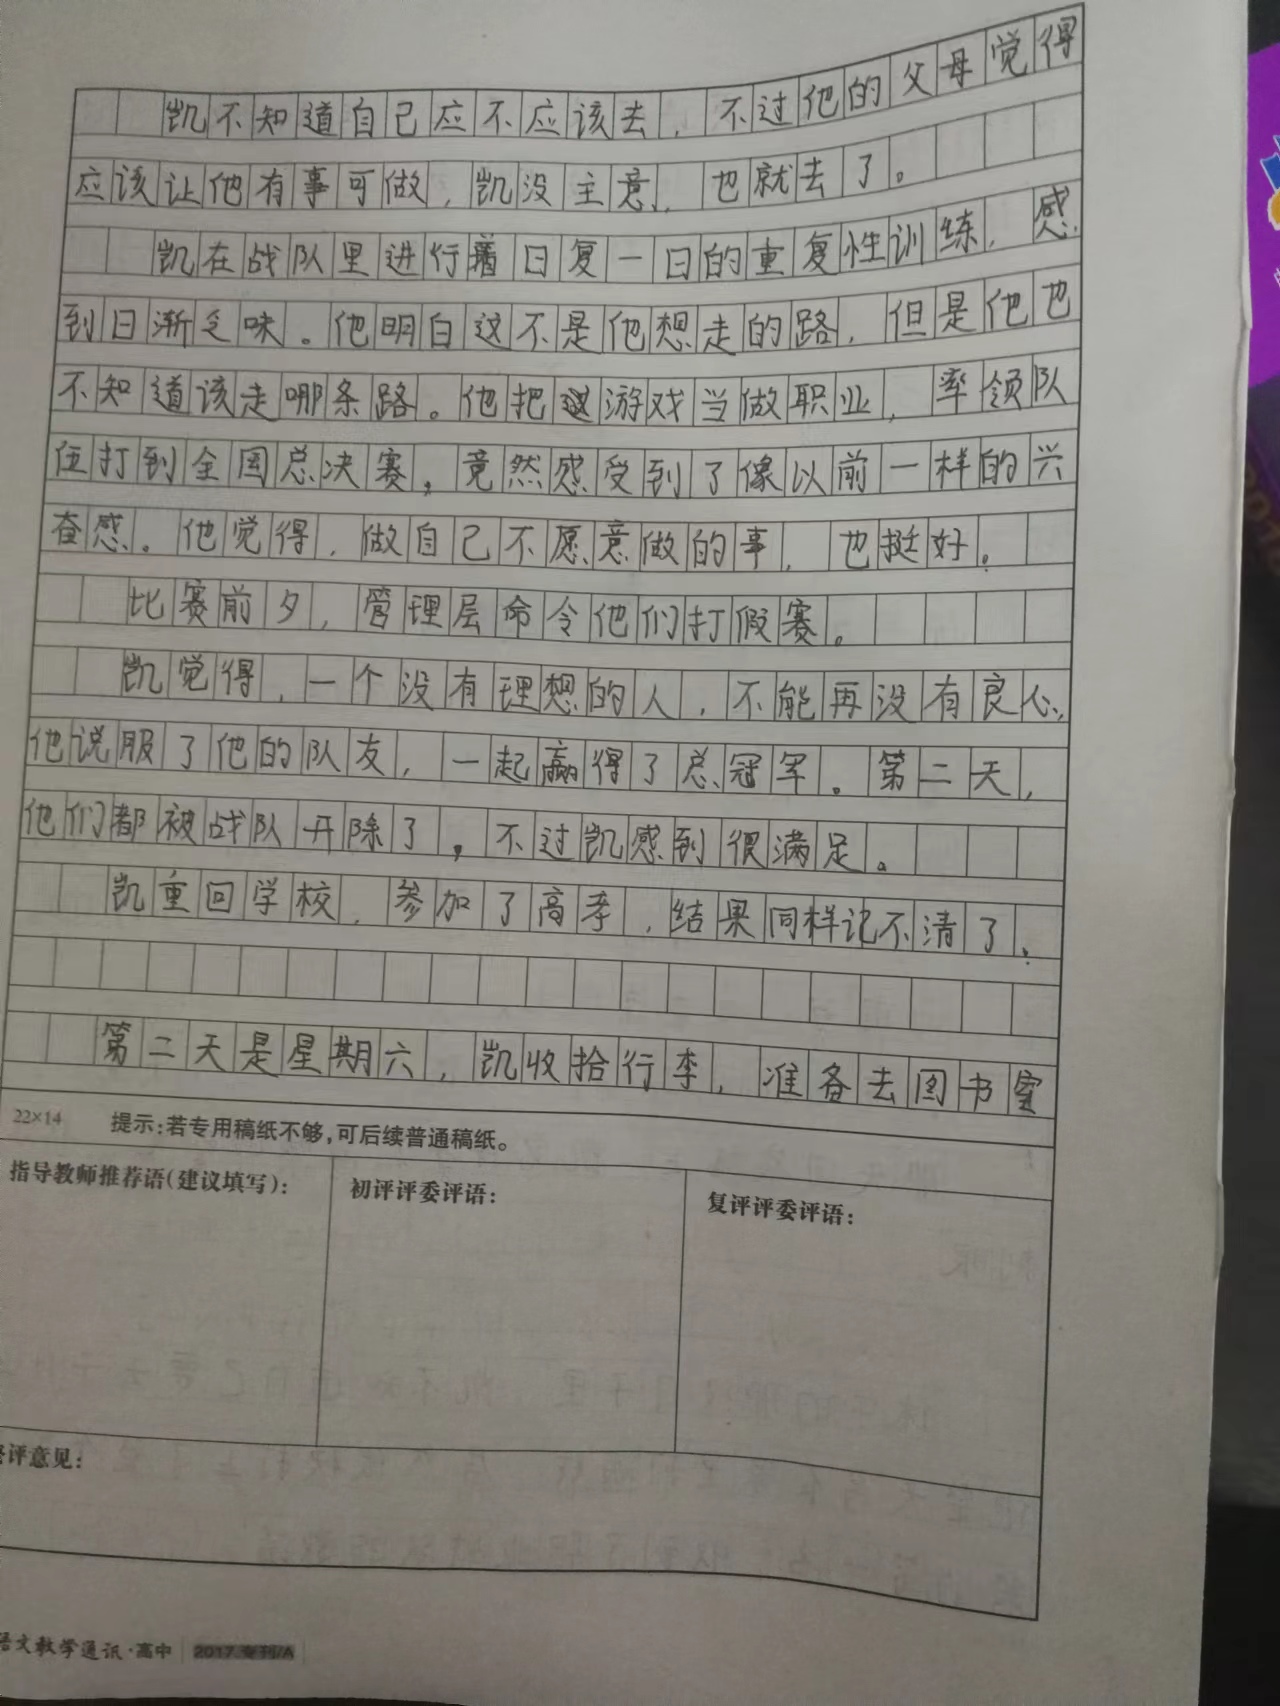 凯不知道自己应不应该去，不过他的父母觉得
应该让他有事可做，凯没主意，也就去了。
凯在战队里进行着日复一日的重复性训练，感
到日渐乏味。他明白这不是他想走的路，但是他也
不知道该走哪条路。他把这游戏当做职业，率领队
伍打到全国总决赛，竟然感受到了像以前一样的兴
奋感。他觉得，做自己不愿意做的事，也挺好。
比赛前夕，管理层命令他们打假赛。
凯觉得，一个没有理想的人，不能再没有良心，
他说服了他的队友，一起赢得了总冠军。第二天，
他们都被战队开除了，不过凯感到很满足。
凯重回学校，参加了高考，结果同样记不清了。
第二天是星期六，凯收拾行李，准备去图书室
22×14 提示：若专用稿纸不够，可后续普通稿纸。
指导教师推荐语（建议填写）： 初评评委评语： 复评评委评语：
终评意见：
语文教学通讯·高中 2017.专刊/A